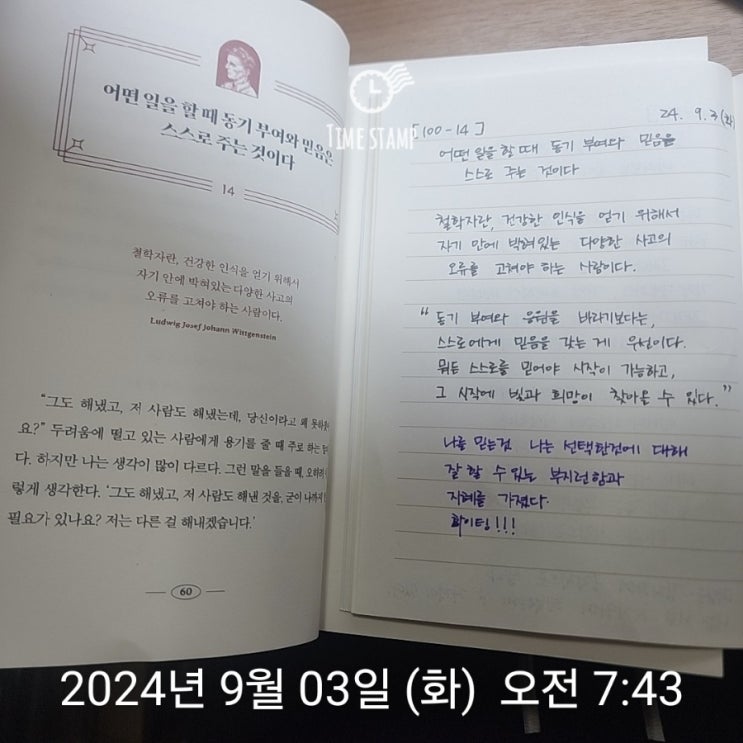 어떤 일을 할 때 동기 부여와 믿음은
스스로 주는 것이다
14
철학자란, 건강한 인식을 얻기 위해서
자기 안에 박혀있는 다양한 사고의
오류를 고쳐야 하는 사람이다.
Ludwig Josef Johann Wittgenstein
"그도 해냈고, 저 사람도 해냈는데, 당신이라고 왜
요?" 두려움에 떨고 있는 사람에게 용기를 줄 때 주로 하는
다. 하지만 나는 생각이 많이 다르다. 그런 말을 들을 때,
렇게 생각한다. '그도 해냈고, 저 사람도 해낸 것을, 굳이
필요가 있나요? 저는 다른 걸 해내겠습니다.'
60
TIME STAMP
24. 9. 3 (화)
[100-14]
어떤 일을 할 때 동기 부여와 믿음은
스스로 주는 것이다
철학자란, 건강한 인식을 얻기 위해서
자기 안에 박혀있는 다양한 사고의
오류를 고쳐야 하는 사람이다.
"동기 부여와 응원을 바라기보다는,
스스로에게 믿음을 갖는 게 우선이다.
뭐든 스스로를 믿어야 시작이 가능하고,
그 시작에 빛과 희망이 찾아올 수 있다."
나를 믿는것 나는 선택한것에 대해
잘 할 수 있는 부지런함과
지혜를 가졌다.
화이팅!!!
2024년 9월 03일 (화) 오전 7:43